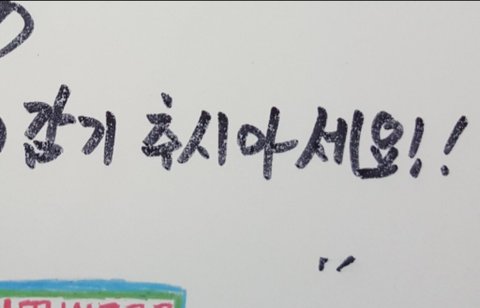 감기 추시아세요!!